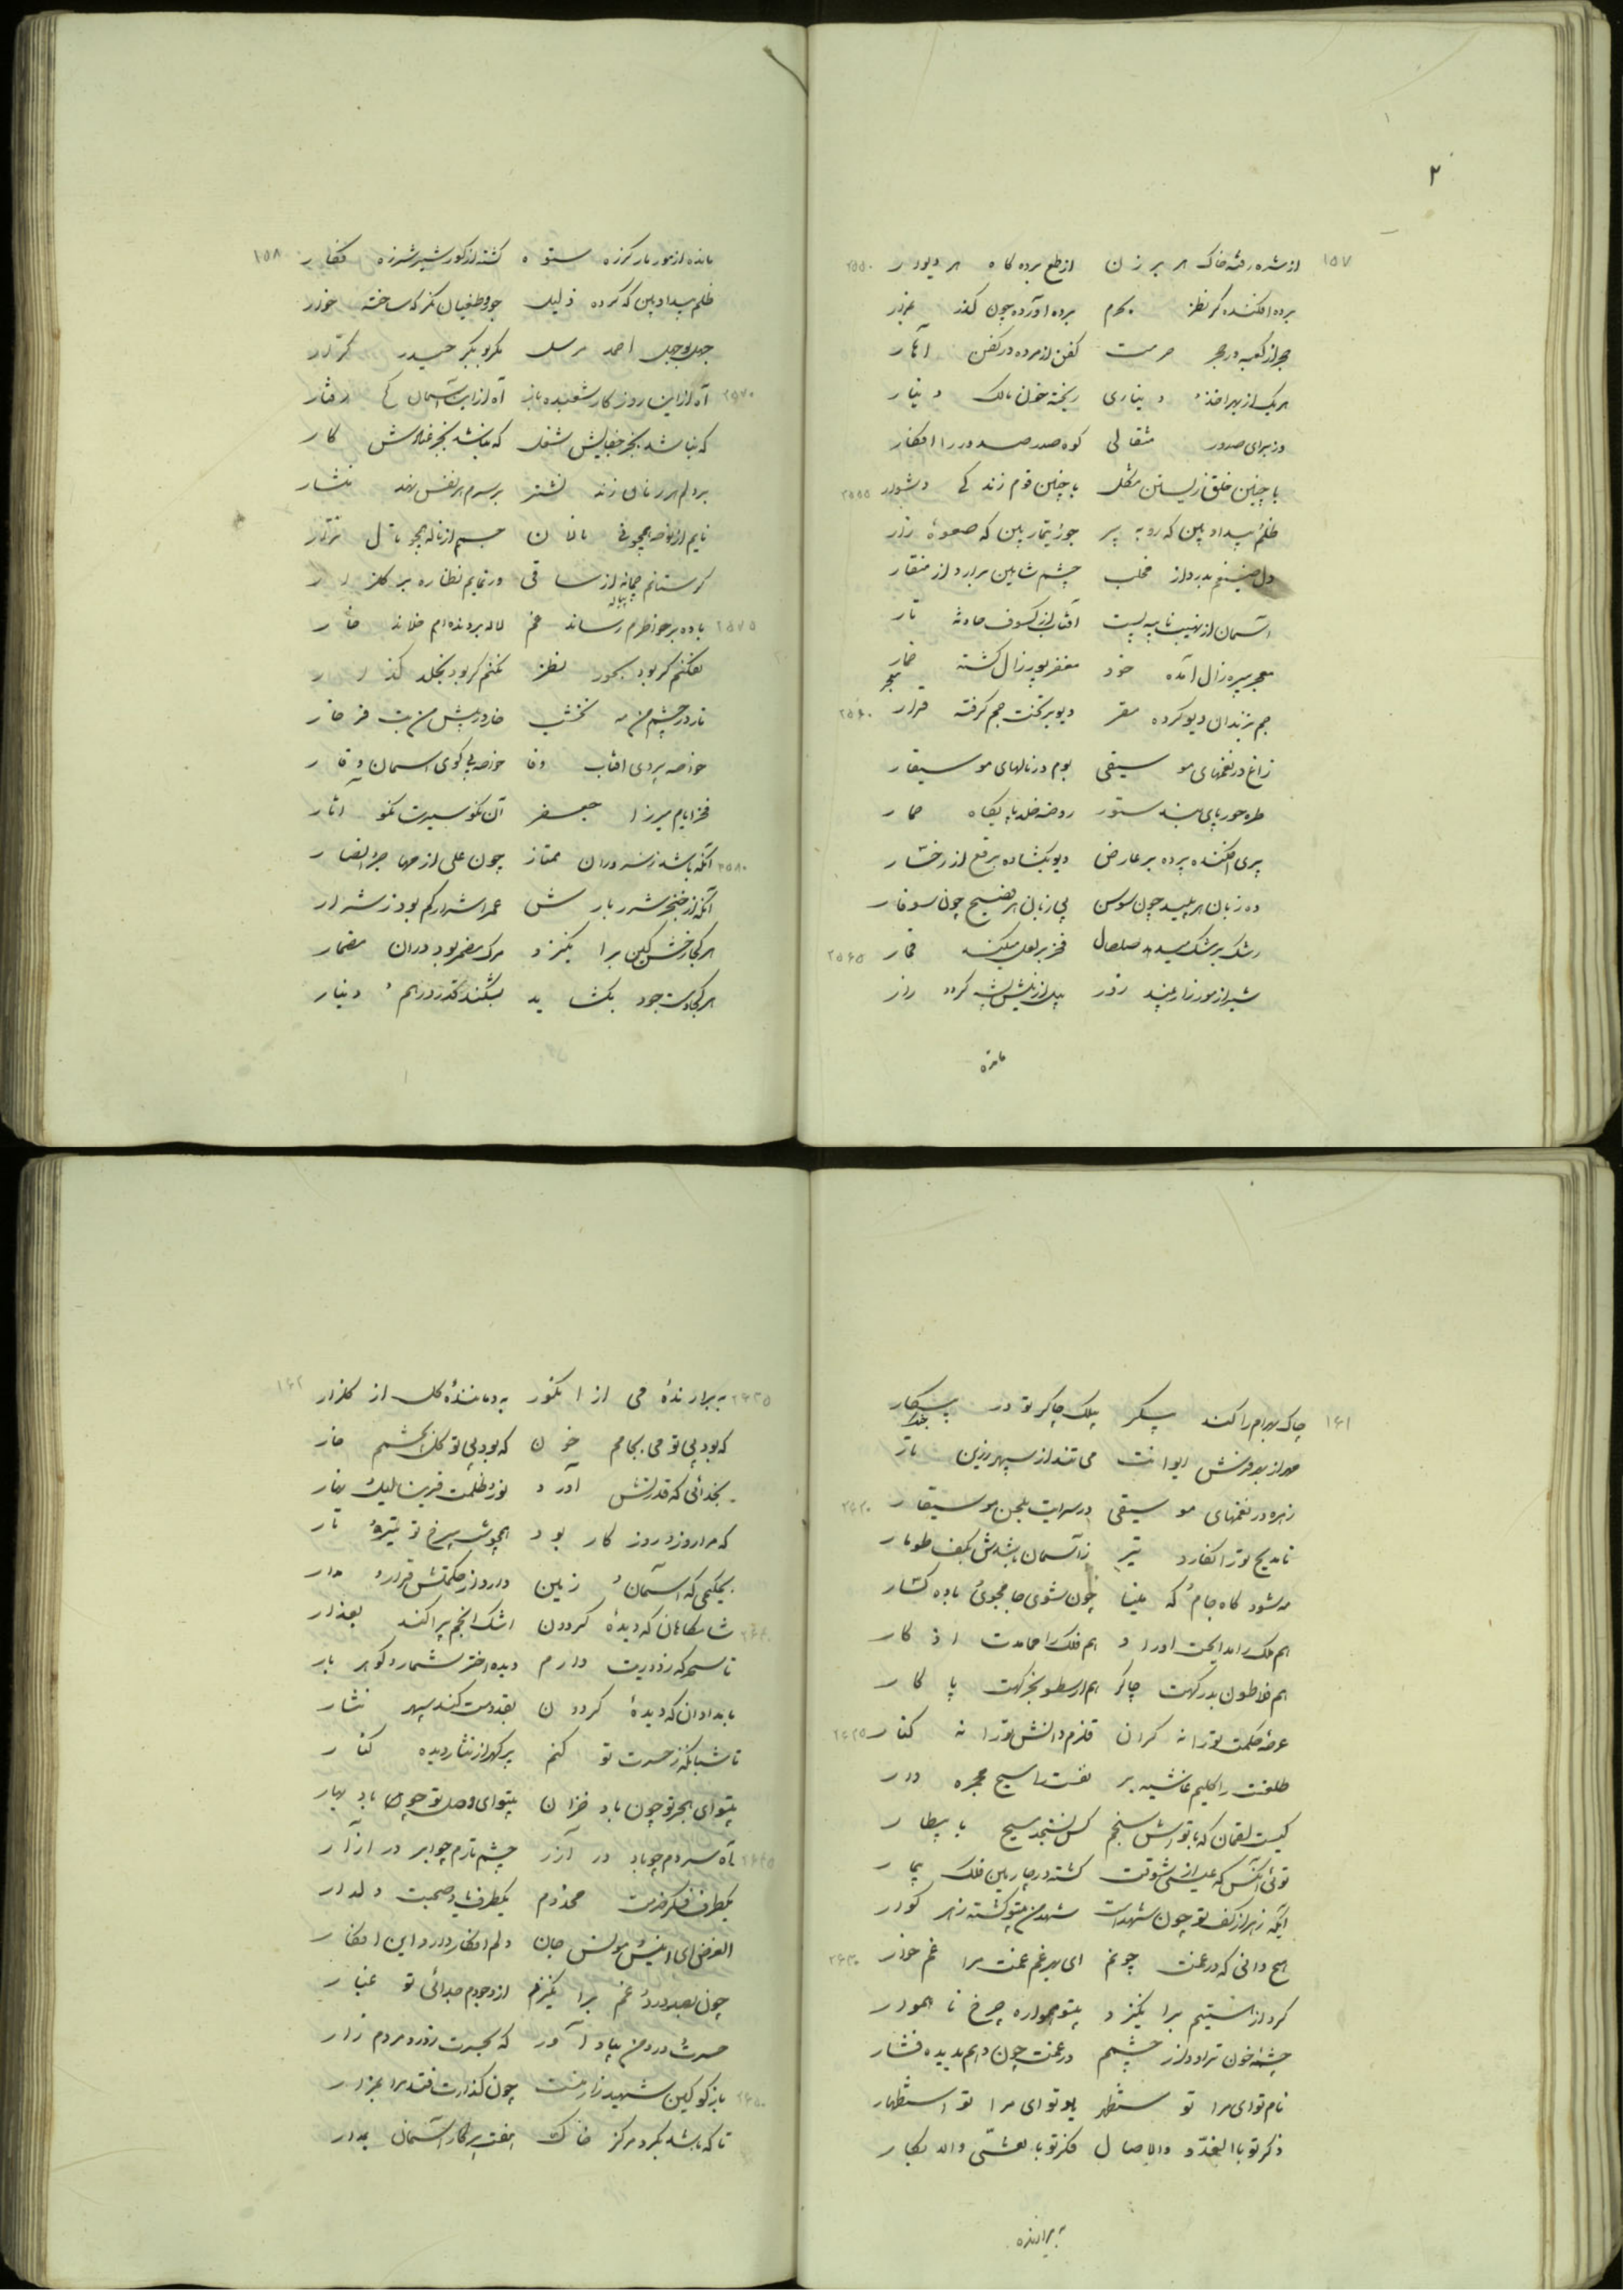 ۲
۱۵۷
از شره رفته خاک هر برزن از طمع برده کاه هر دیوار ۲۵۵۰
پرده افکنده گر نظر بحرم پرده آورده چون گذر
حجر از کعبه در حجر حرمت کفن از مرده در کفن
هر یک از بهر اخذ دیناری ریخته خون مالک دینار
وز برای صدور مثقالی کوه صدر صدور را افکار
با چنین خلق زیستن مشکل با چنین قوم زندگی دشوار ۲۵۵۵
ظلم بیداد بین که روبه پیر جور تیمار بین که صعوهٔ زار
دل ضیغم بدرد از مخلب چشم شاهین برآرد از منقار
آسمان از نهیب پست آفتاب از کسوف حادثه تار
معجر پیره زال آمده خود مغفر پور زال گشته خمار
معجر
جم بزندان دیو کرده مقر دیو بر تخت جم گرفته قرار ۲۵۶۰
زاغ در نغمهای موسیقی بوم در نالهای موسیقار
طره حور پای بند ستور روضه خلد پایگاه حمار
پری افکنده پرده بر عارض دیو بگشاده برقع از رخسار
ده زبان هر پلید چون سوسن بی زبان هر فصیح چون سوفار
رشک بر مشک میبرد صلصال فخر بر لعل میکند فخار ۲۵۶۵
شیر از مور زار بیند زور پیل از نیش پشه گردد زار
مانده
۱۵۸
مانده از مور مار گرزه ستوه گشته از گور شیر شرزه فکار
ظلم بیداد بین که کرده ذلیل جور طغیان نگر که ساخته خوار
جهل بوجهل احمد مرسل مکر بوبکر حیدر کرار
۲۵۷۰ آه از این روزگار شعبده باز آه از این آسمان کج رفتار
که نباشد بجز جفایش شغل که نباشد بجز عنادش کار
بر دلم هر زمان زند نشتر بر سرم هر نفس نهد منشار
نایم از نوحه همچو نی نالان جسمم از ناله همچو نال نزار
گر ستانم چمانه از ساقی ور نمایم نظاره بر گلزار
پیاله
۲۵۷۵ باده بر خاطرم رساند غم لاله بر دیده ام خلاند خار
نفکنم گر بود بحور نظر نکنم گر بود بخلد گذار
نار در چشم من مه نخشب خار در پیش من بت فرخار
خاصه بی روی آفتاب وفا خاصه بی کوی آسمان وقار
فخر ایام میرزا جعفر آن نکو سیرت نکو آثار
۲۵۸۰ آنکه باشد ز سروران ممتاز چون علی از مهاجر و انصار
آنکه از خنجر شرر بارش عمر اشرار کم بود ز شرار
هر کجا رخش کین برانگیزد مرگ مضمر بود در آن مضمار
هر کجا دست جود بگشاید بشکند قدر درهم و دینار
۱۶۱
چاک بهرام را کند پیکر پیلک چاکر تو در پیکار
مهر از بهر فرش ایوانت می تند از سپهر زرین تار
زهره در نغمهای موسیقی در سرایت بلحن موسیقار ۲۶۲۰
تا مدیح تو را نگارد تیر ز آسمان باشدش بکف طومار
مه شود گاه جام و گه مینا چون شوی جامجوی و باده گسار
هم ملک را مدایحت اوراد هم فلک را محامدت اذکار
هم فلاطون بدرگهت چاکر هم ارسطو بخرگهت پاکار
عرصه حکمت تو را نه کران قلزم دانش تو را نه کنار ۲۶۲۵
طلعتت را کلیم غاشیه بر نفست را مسیح مجمره دار
کیست لقمان که با تواش سنجم کس نسنجد مسیح با بیطار
توئی آنکس که عیسی از شوقت گشته در چارمین فلک بیمار
ایکه زهر از کف تو چون شهد است شهد من بیتو گشته زهر گوار
هیچ دانی که در غمت چونم ای بهر غم غمت مرا غمخوار ۲۶۳۰
گرد از هستیم برانگیزد بیتو همواره چرخ ناهموار
چشمه خون تراود از چشمم در غمت چون دهم بدیده فشار
نام تو ای مرا تو مستظهر یاد تو ای مرا تو استظهار
ذکر تو بالغدو والآصال فکر تو بالعشی والابکار
به برارنده
۱۶۲
۲۶۳۵ به برارندهٔ می از انگور به دمانندهٔ گل از گلزار
که بود بی تو می بجامم خون که بود بی تو گل بچشمم خار
بخدائی که قدرتش آورد نور و ظلمت قرین لیل و نهار
که مرا روز و روزگار بود همچو شب بی رخ تو تیره و تار
بحکیمی که آسمان و زمین دارد از حکمتش قرار و مدار
۲۶۴۰ شامگاهان که دیدهٔ گردون اشک انجم پراکند بعذار
تا سحرگه ز دوریت دارم دیده اختر شمار و گوهر بار
بامدادان که دیدهٔ گردون نقد دست کند سپهر نثار
تا شبانگه ز حسرت تو کنم پر گهر از نثار دیده کنار
بیتو ای هجر تو چون باد خزان بیتو ای وصل تو چو باد بهار
۲۶۴۵ آه سردم چو باد در آذر چشم ترم چو ابر در آزار
یکطرف فکر خدمت مخدوم یکطرف یاد صحبت دلدار
الغرض ای انیس و مونس جان دلم افکار دارد این افکار
چون بصد درد و غم برانگیزم از وجودم جدائی تو غبار
حسرت درد من بیاد آور که بحسرت ز درد مردم زار
۲۶۵۰ بازگو کاین شهید زار منست چون گذارت فتد مرا بمزار
تا که باشد بگرد مرکز خاک هفت پرگار آسمان بمدار